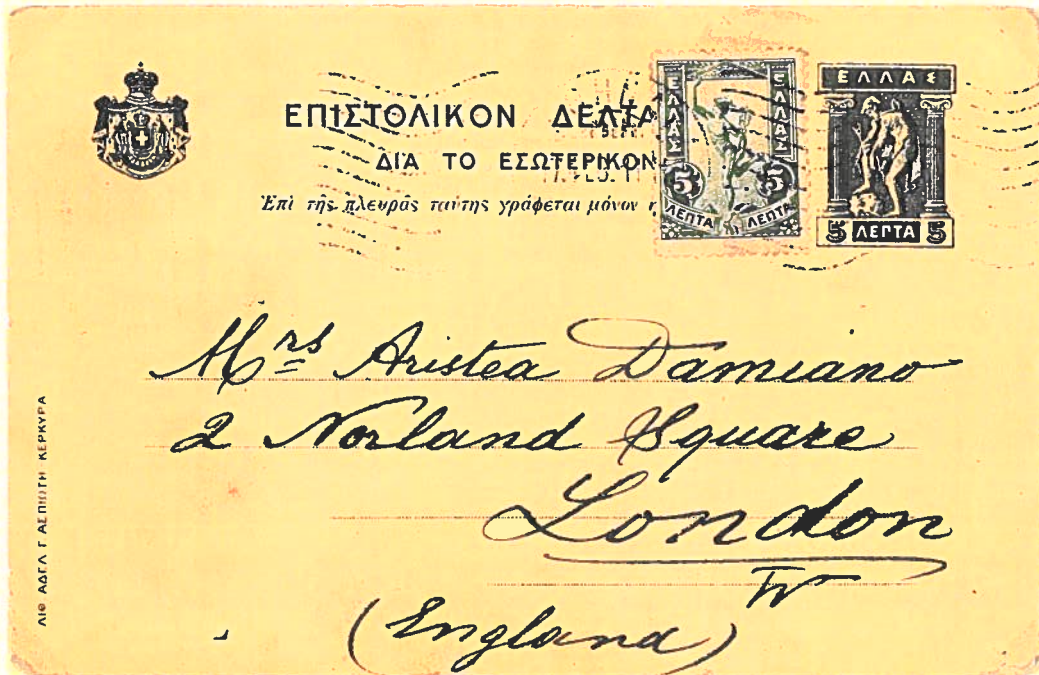 ΕΠΙΣΤΟΛΙΚΟΝ ΔΕΛΤΑ
ΔΙΑ ΤΟ ΕΣΩΤΕΡΙΚΟΝ
Ἐπὶ τῆς πλευρᾶς ταύτης γράφεται μόνον
ΕΛΛΑΣ
ΕΛΛΑΣ
5 5
ΛΕΠΤΑ ΛΕΠΤΑ
ΕΛΛΑΣ
5 ΛΕΠΤΑ 5
Mrs Aristea Damiano
2 Norland Square
London
W
(England)
ΛΙΘ ΑΔΕΛ Γ ΑΣΠΙΩΤΗ ΚΕΡΚΥΡΑ